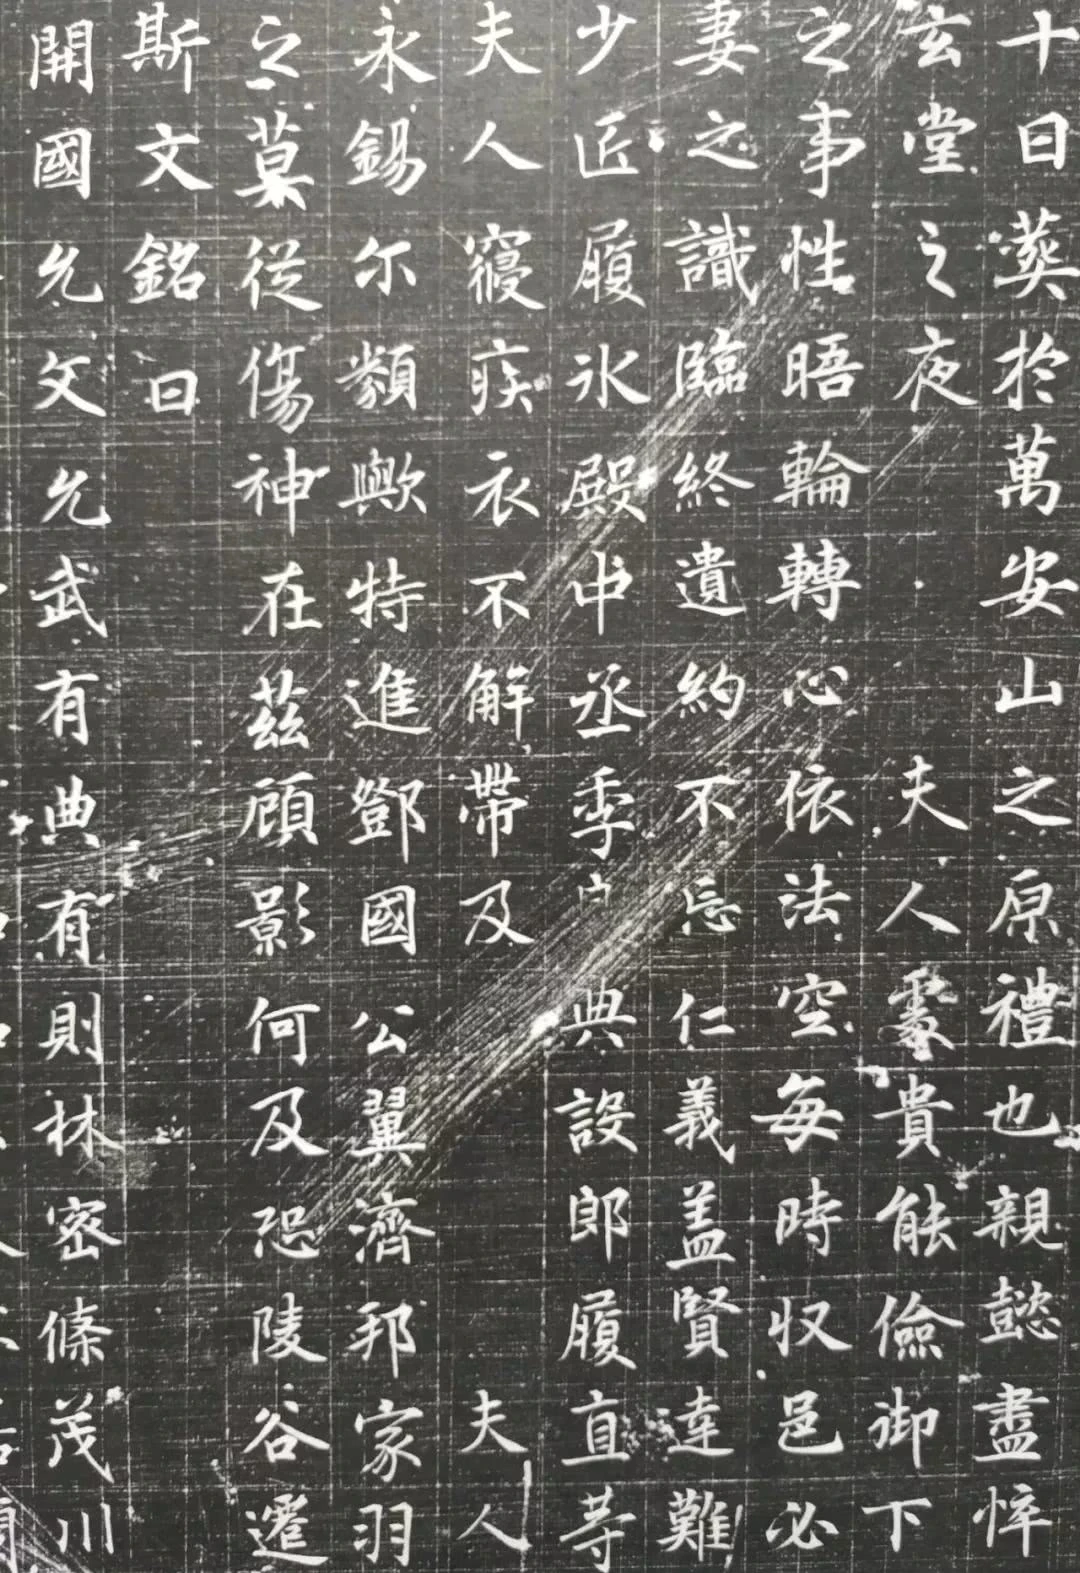 十日葬於萬安山之原禮也親懿盡悴
玄堂之夜 夫人處貴能儉御下
之事性晤輪轉心依法空每時收邑必
妻之識臨終遺約不忘仁義盖賢達難
少匠履氷殿中丞季户典設郎履直等
夫人寢疾衣不解帶及 夫人
永錫尓類歟特進鄧國公翼濟邦家羽
之菓從傷神在茲顧影何及恐陵谷遷
斯文銘曰
開國允文允武有典有則林密條茂川